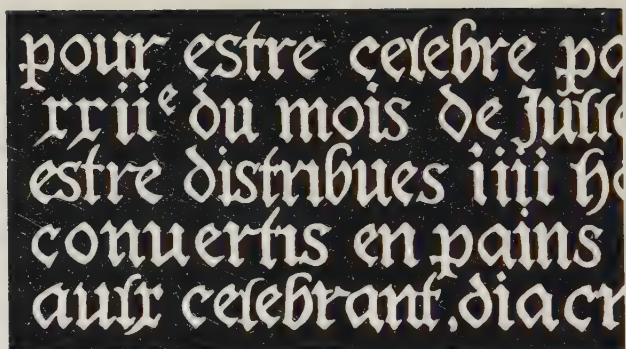 pour estre celebre po
xxii^e du mois de Jull
estre distribues iiii he
conuertis en pains
aulx celebrant, diacr